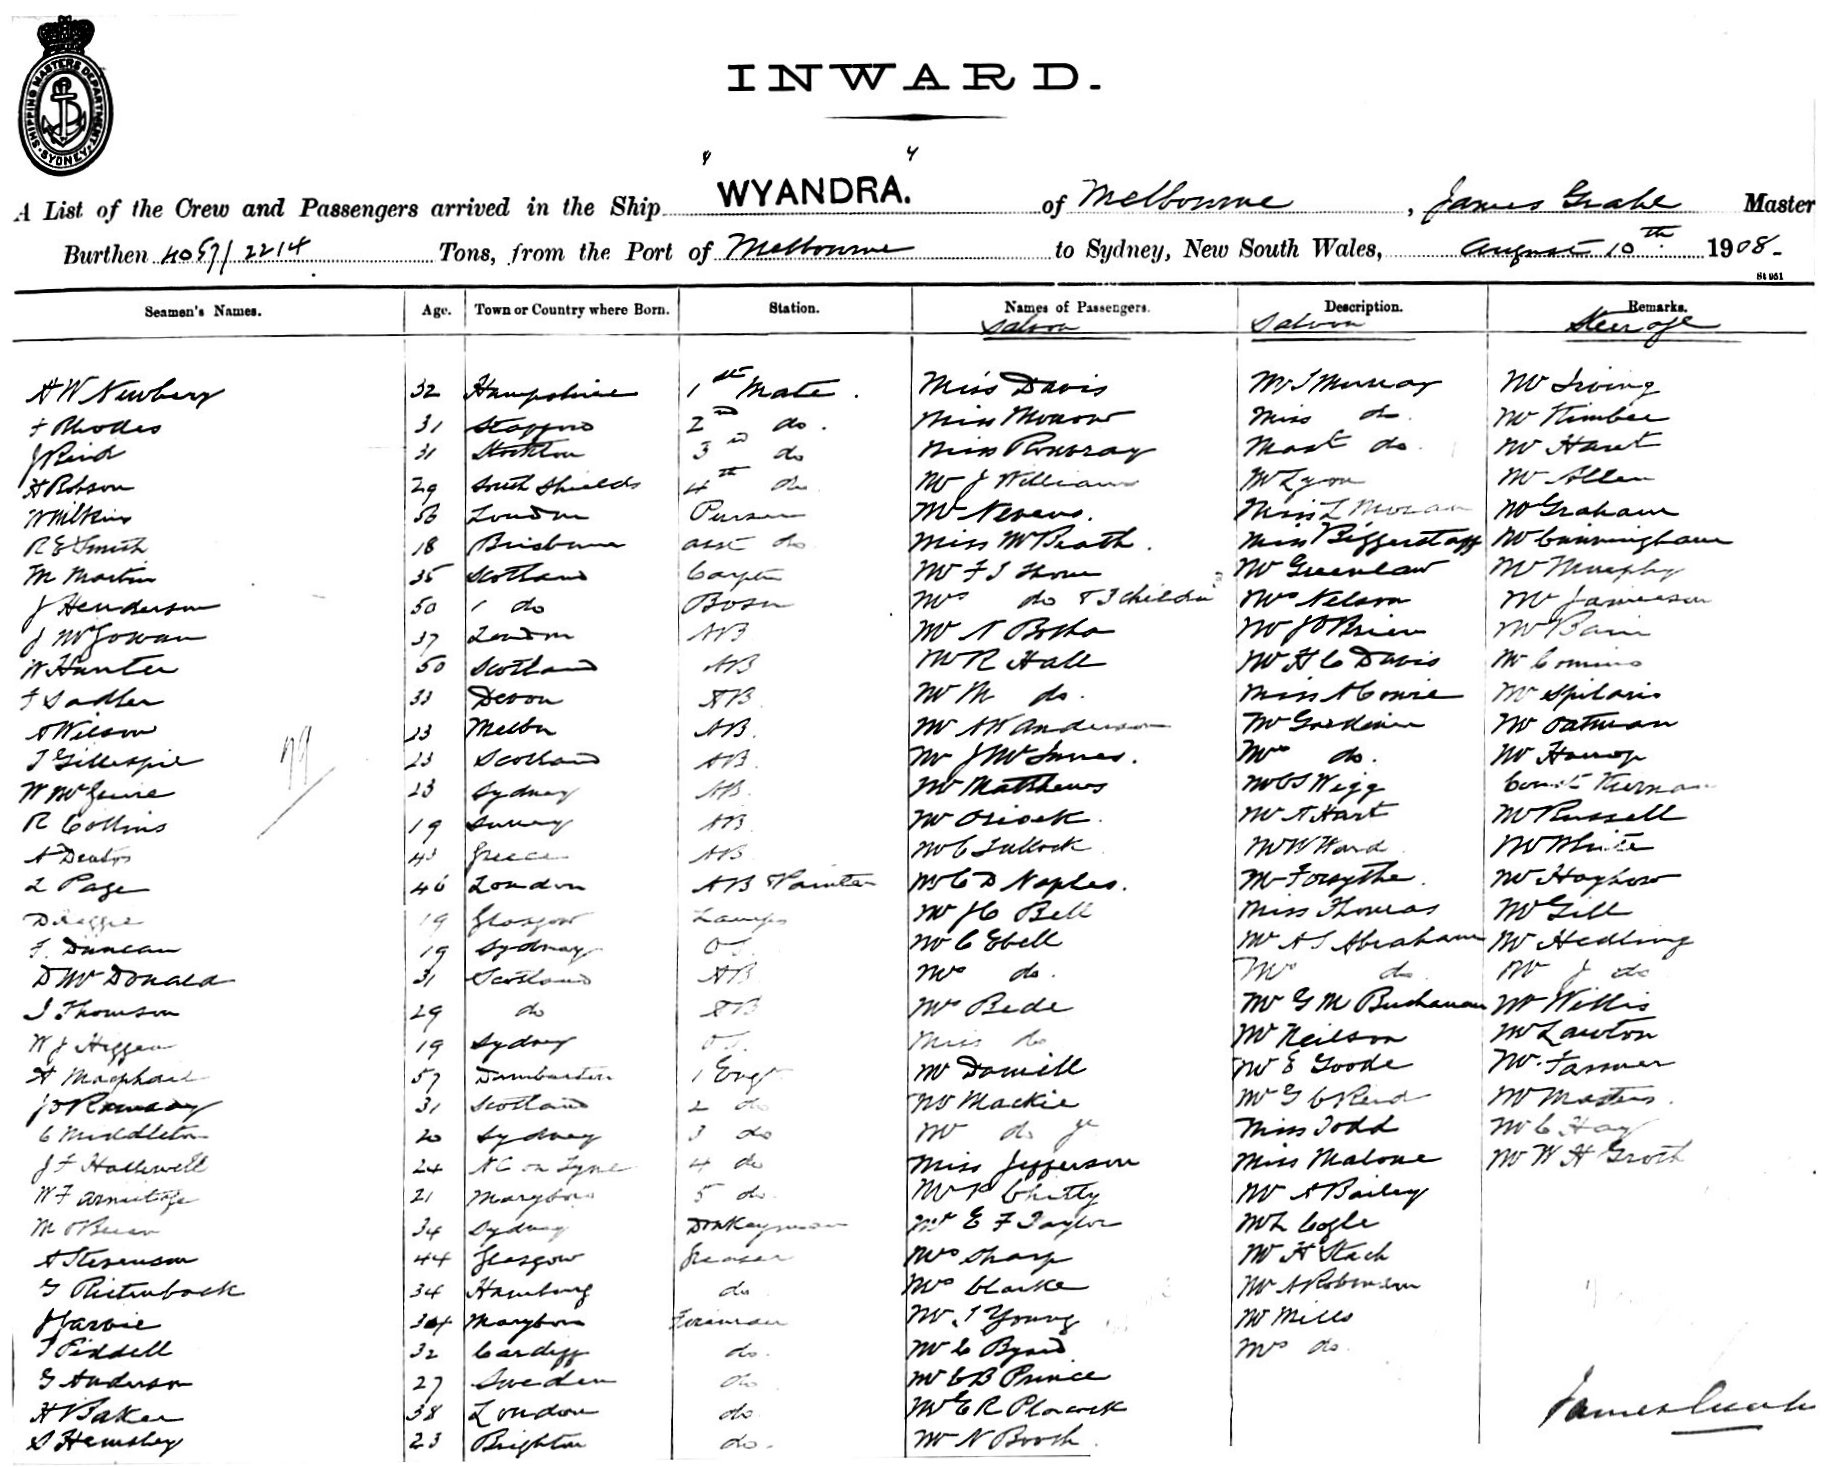 SHIPPING MASTERS DEPARTMENT. SYDNEY.
INWARD.
A List of the Crew and Passengers arrived in the Ship "WYANDRA." of Melbourne, James Master
Burthen 4057/2214 Tons, from the Port of Melbourne to Sydney, New South Wales, August 10th 1908-
St 951
Seamen's Names. Age. Town or Country where Born. Station. Names of Passengers. Description. Remarks.
Saloon Saloon Steerage
H W Newbery 32 Hampshire 1st Mate. Miss Davis Mr J Murray Mr Irving
F Rhodes 31 Stafford 2nd do. Miss Morrow Miss do. Mr Kimber
J Reid 31 Stockton 3rd do Miss Mast do. Mr Hant
H Robson 29 South Shields 4th do Mr J Williams Mr Lyon Mr Allen
W Wilkins 56 London Purser Mr Nevens. Miss L Moran Mr Graham
R E Smith 18 Brisbane asst do. Miss McBeath. Miss Biggerstaff Mr Cunningham
M Martin 35 Scotland Carptr Mr F J Thorne Mr Greenlaw Mr Murphy
J Henderson 50 do Bosn Mrs do & 3 children Mrs Nelson Mr Jamieson
J McGowan 37 London AB Mr N Botha Mr J O'Brien Mr Bain
W Hunter 50 Scotland AB Mr R Hall Mr H C Davis Mr Comino
F Sadler 33 Devon AB. Mr M do. Miss A Cowie Mr Spilaris
A Wilson 23 Melbn AB. Mr A W Anderson Mr Gardiner Mr Oatman
T Gillespie 23 Scotland AB. Mr J McInnes. Mrs do. Mr Harrop
W McGuire 23 Sydney AB. Mr Matthews Mr C S Wigg Const Kiernan
R Collins 19 Surrey AB Mr Mr T Hart Mr Russell
A 43 Greece AB Mr C Tullock Mr W Ward Mr White
L Page 46 London AB & Painter Mr C D Naples. Mr Forsythe. Mr Haybow
D 19 Glasgow Lamps Mr J C Bell Miss Thomas Mr Gill
F. Duncan 19 Sydney O.S. Mr C Ebell Mr A S Abraham Mr Hedling
D McDonald 31 Scotland AB Mrs do. Mrs do Mr J do
J Thomson 29 do AB Mrs Bede Mr G M Buchanan Mr Willis
W J 19 Sydney O.S. Miss do Mr Neilson Mr Lawton
A Macphail 57 Dumbarton 1 Engr Mr Daniell Mr E Goode Mr. Farmer
J D Ramsay 31 Scotland 2 do Mr Mackie Mr G C Reid Mr Masters.
C Middleton 20 Sydney 3 do Mr do jr Miss Todd Mr C Hay
J F Halliwell 24 NC on Tyne 4 do Miss Jefferson Miss Malone Mr W H Groth
W F Armitage 21 Maryboro 5 do. Mr P Chitty Mr A Bailey
M O'Brien 34 Sydney Donkeyman Mr E F Taylor Mr L Cogle
A Stevenson 44 Glasgow Greaser Mrs Sharp Mr H Stach
G Rietenback 34 Hamburg do Mrs Clarke Mr A Robinson
J Garvie 34 Maryboro Fireman Mr. J Young Mr Mills
T Piddell 32 Cardiff do. Mr C Byard Mrs do.
G Anderson 27 Sweden do Mr C B Prince
H Baker 38 London do. Mr E R Plocock
S Hemsley 23 Brighton do. Mr N Booth.
James